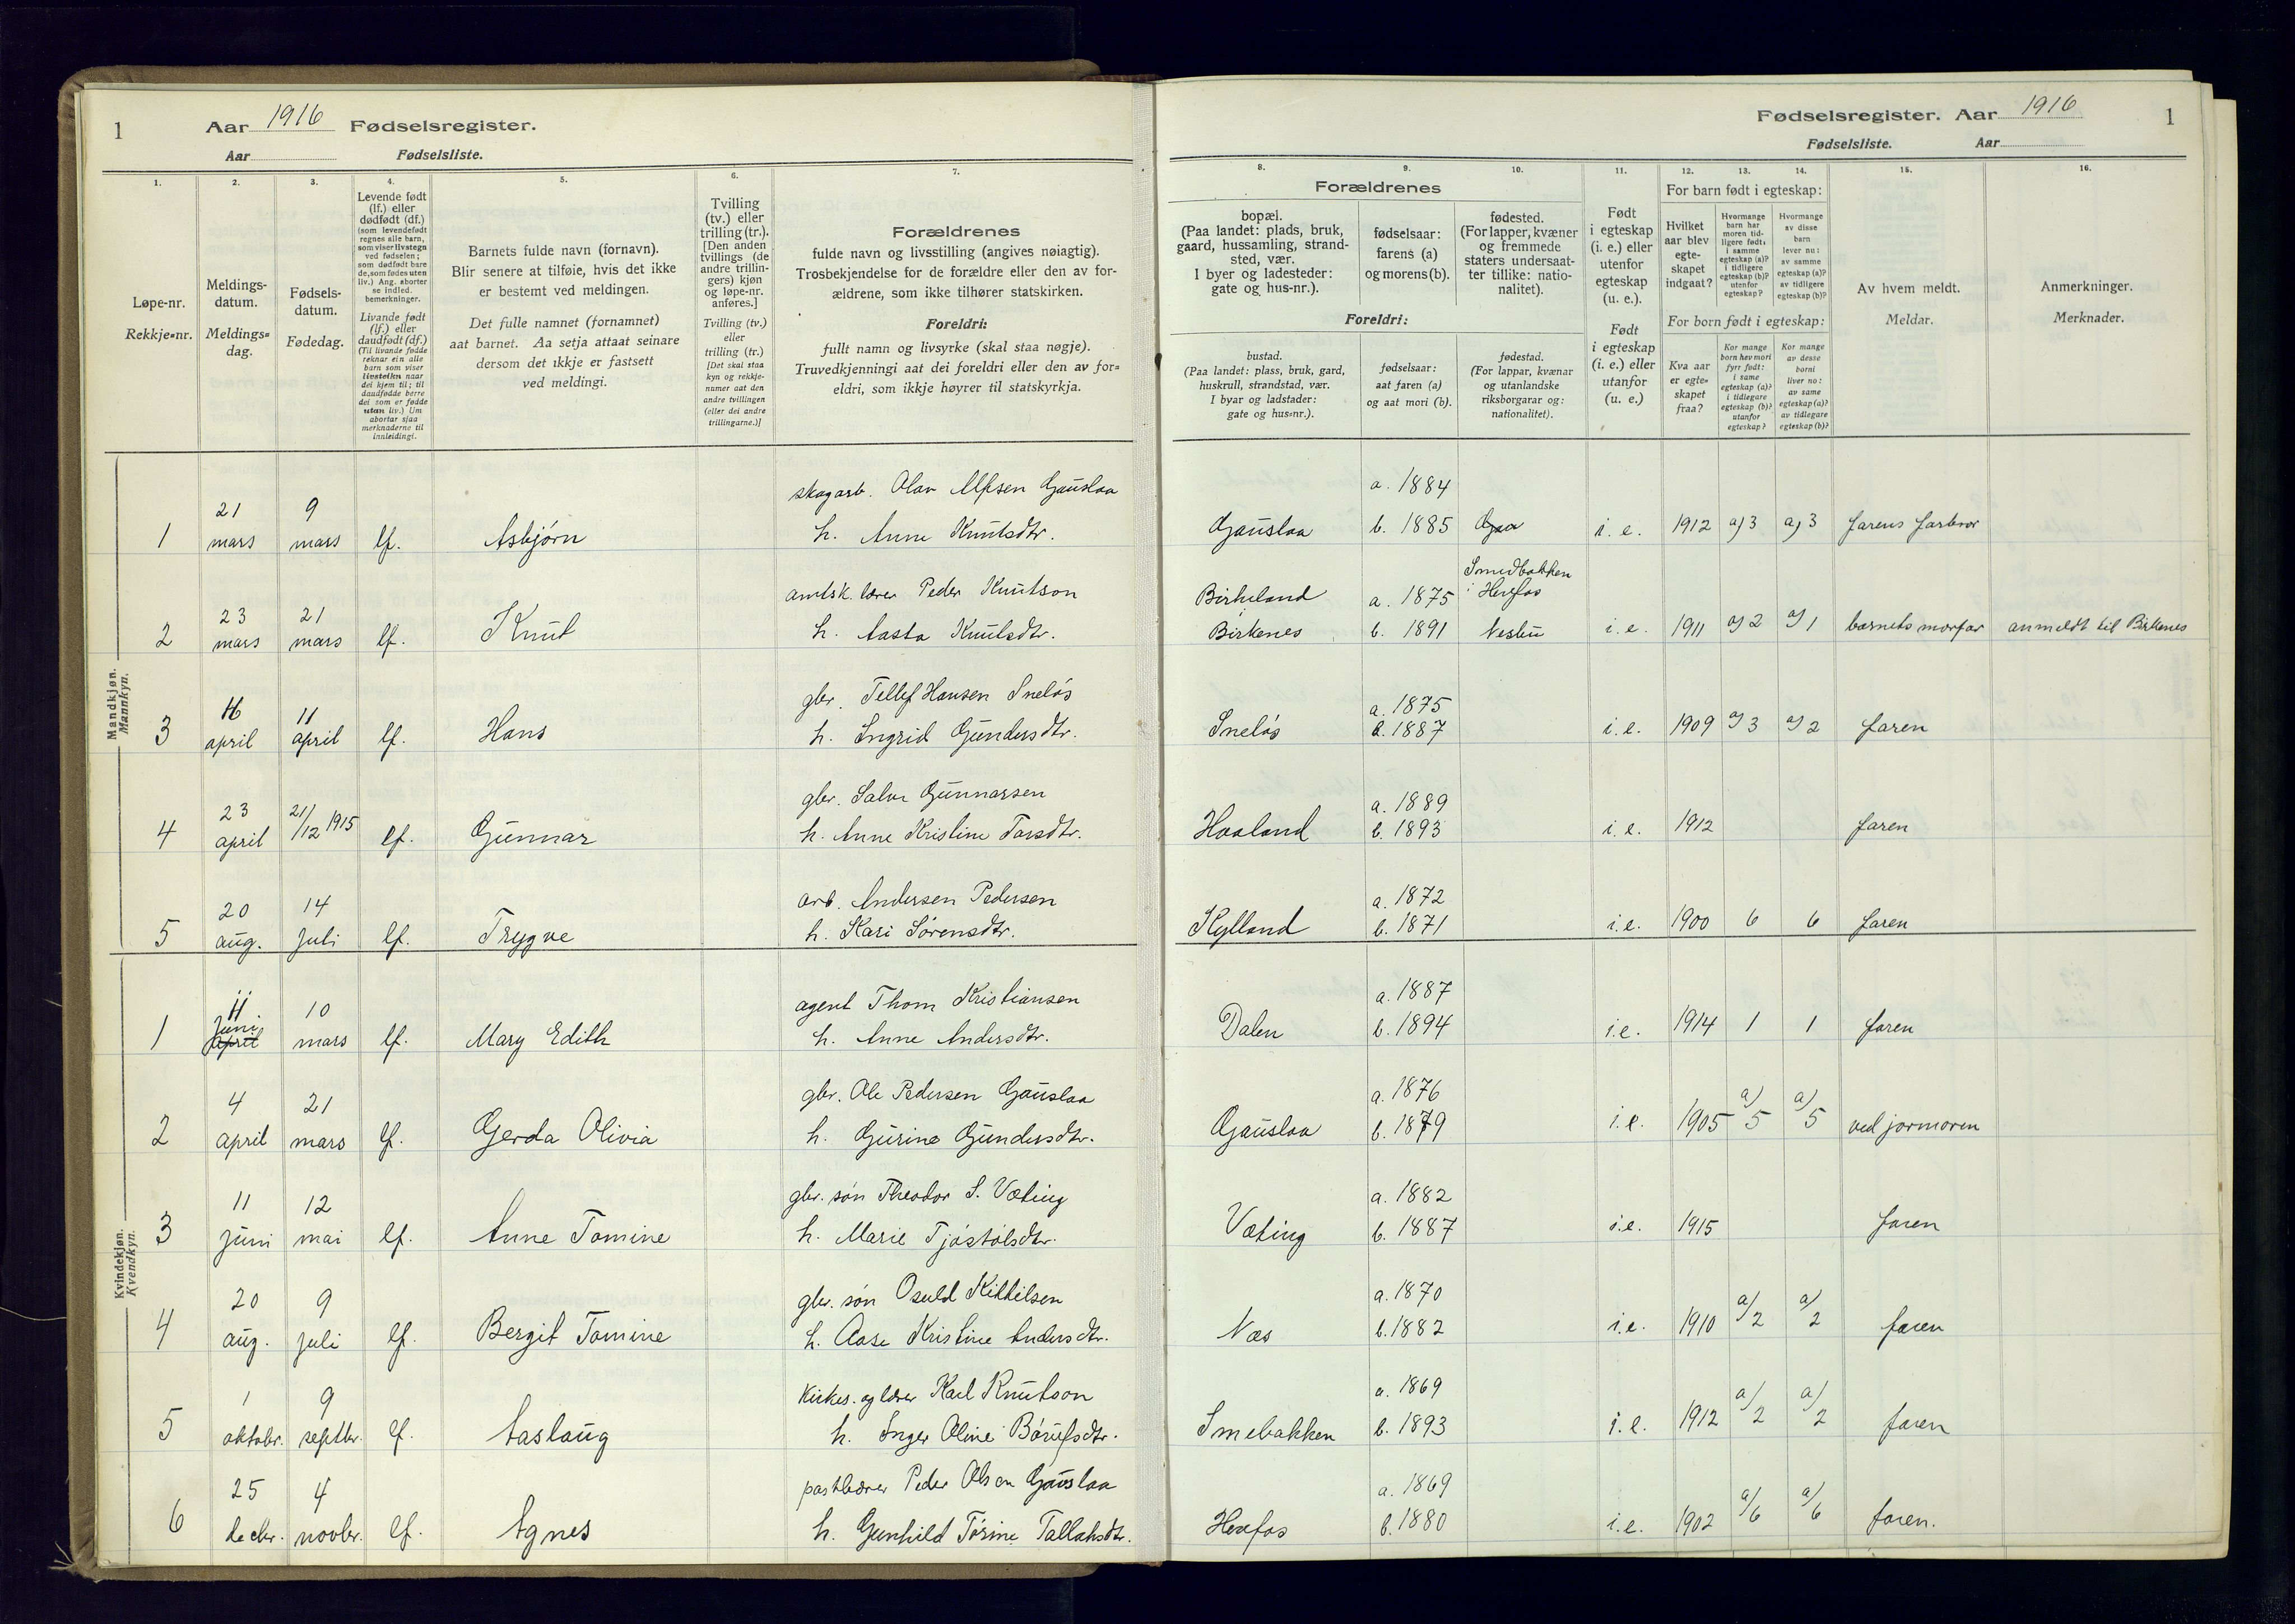 1
Aar 1916 Fødselsregister.
Aar Fødselsliste.
Fødselsregister. Aar 1916
1
Fødselsliste. Aar
1.
Løpe-nr.
Rekkje-nr.
2.
Meldings-
datum.
Meldings-
dag.
3.
Fødsels-
datum.
Fødedag.
4.
Levende født
(lf.) eller
dødfødt (df.)
(som levendefødt
regnes alle barn,
som viser livstegn
ved fødselen;
som dødfødt bare
de, som fødes uten
liv.) Ang. aborter
se indled.
bemerkninger.
Livande født
(lf.) eller
daudfødt (df.)
(Til livande fødde
reknar ein alle
barn som viser
livsteikn naar
dei kjem til; til
daudfødde berre
dei som er fødde
utan liv.) Um
abortar sjaa
merknaderne til
innleidingi.
5.
Barnets fulde navn (fornavn).
Blir senere at tilføie, hvis det ikke
er bestemt ved meldingen.
Det fulle namnet (fornamnet)
aat barnet. Aa setja attaat seinare
dersom det ikkje er fastsett
ved meldingi.
6.
Tvilling
(tv.) eller
trilling (tr.).
[Den anden
tvillings (de
andre trillin-
gers) kjøn
og løpe-nr.
anføres.]
Tvilling (tv.)
eller
trilling (tr.)
[Det skal staa
kyn og rekkje-
numer aat den
andre tvillingen
(eller dei andre
trillingarne.)]
7.
Forældrenes
fulde navn og livsstilling (angives nøiagtig).
Trosbekjendelse for de forældre eller den av for-
ældrene, som ikke tilhører statskirken.
Foreldri:
fullt namn og livsyrke (skal staa nøgje).
Truvedkjenningi aat dei foreldri eller den av for-
eldri, som ikkje høyrer til statskyrkja.
8.
Forældrenes
bopæl.
(Paa landet: plads, bruk,
gaard, hussamling, strand-
sted, vær.
I byer og ladesteder:
gate og hus-nr.).
Foreldri:
bustad.
(Paa landet: plass, bruk, gard,
huskrull, strandstad, vær.
I byar og ladstader:
gate og hus-nr.).
9.
fødselsaar:
farens (a)
og morens (b).
fødselsaar:
aat faren (a)
og aat mori (b).
10.
fødested.
(For lapper, kvæner
og fremmede
staters undersaat-
ter tillike: natio-
nalitet).
fødestad.
(For lappar, kvænar
og utanlandske
riksborgarar og:
nationalitet).
11.
Født
i egteskap
(i. e.) eller
utenfor
egteskap
(u. e.).
Født
i egteskap
(i. e.) eller
utanfor
(u. e.)
12. 13. 14.
For barn født i egteskap:
Hvilket
aar blev
egte-
skapet
indgaat?
Hvormange
barn har
moren tid-
ligere født:
i samme
egteskap (a)?
i tidligere
egteskap (b)?
utenfor
egteskap?
Hvormange
av disse
barn
lever nu:
av samme
egteskap (a)?
av tidligere
egteskap (b)?
For born født i egteskap:
Kva aar
er egte-
skapet
fraa?
Kor mange
born hev mori
fyrr født:
i same
egteskap (a)?
i tidlegare
egteskap (b)?
utanfor
egteskap?
Kor mange
av desse
borni
liver no:
av same
egteskap (a)?
av tidlegare
egteskap (b)?
15.
Av hvem meldt.
Meldar.
16.
Anmerkninger.
Merknader.
Mandkjøn.
Mannkyn.
1 21 mars 9 mars lf. Asbjørn skogarb. Olav Alfsen Gauslaa
h. Anne Knutsdtr. Gauslaa a. 1884
b. 1885 i. e. 1912 a) 3 a) 3 farens farbror
2 23 mars 21 mars lf. Knut amtsk. lærer Peder Knutson
h. Aasta Knutsdtr. Birkeland
i Birkenes a. 1875
b. 1891 Smedbakken
i Herefos
Nesbu i. e. 1911 a) 2 a) 1 barnets morfar anmeldt til Birkenes
3 16 april 11 april lf. Hans gbr. Tellef Hansen Sneløs
h. Ingrid Gundersdtr. Sneløs a. 1875
b. 1887 i. e. 1909 a) 3 a) 2 faren
4 23 april 21/12 1915 lf. Gunnar gbr. Salve Gunnarsen
h. Anne Kristine Tarsdtr. Haaland a. 1889
b. 1893 i. e. 1912 faren
5 20 aug. 14 juli lf. Trygve arb. Andersen Pedersen
h. Kari Sørensdtr. Kylland a. 1872
b. 1871 i. e. 1900 6 6 faren
Kvindekjøn.
Kvendkyn.
1 11 juni april 10 mars lf. Mary Edith agent Thom Kristiansen
h. Anne Andersdtr. Dalen a. 1887
b. 1894 i. e. 1914 1 1 faren
2 4 april 21 mars lf. Gerda Olivia gbr. Ole Pedersen Gauslaa
h. Gurine Gundersdtr. Gauslaa a. 1876
b. 1879 i. e. 1905 a) 5 a) 5 ved jormoren
3 11 juni 12 mai lf. Anne Tomine gbr. søn Theodor S. Væting
h. Marie Tjøstolsdtr. Væting a. 1882
b. 1887 i. e. 1915 faren
4 20 aug. 9 juli lf. Bergit Tomine gbr. søn Osuld Kittilsen
h. Aase Kristine Andersdtr. Næs a. 1870
b. 1882 i. e. 1910 a/2 a/2 faren
5 1 oktobr. 9 septbr. lf. Aaslaug Kirkes. og lærer Karl Knutson
h. Inger Oline Børufsdtr. Smebakken a. 1869
b. 1893 i. e. 1912 a/2 a/2 faren
6 25 decbr. 4 novbr. lf. Agnes Peder Olsen Gauslaa
h. Gunhild Tørine Tallaksdtr. Herefos a. 1869
b. 1880 i. e. 1902 a/6 a/6 faren.